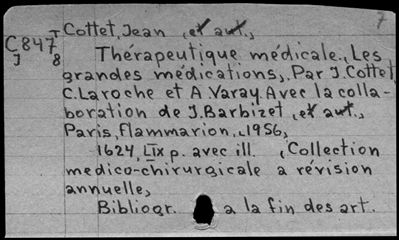 7
T Cottet, Jean, et aut.,
C847
J 8
Thérapeutique médicale., Les
grandes médications, Par J. Cottet,
C. Laroche et A. Varay. Avec la colla-
boration de J. Barbizet, et aut.,
Paris, Flammarion, 1956,
1624, LIX p. avec ill. , Collection
medico-chirurgicale a révision
annuelle,
Bibliogr. a la fin des art.